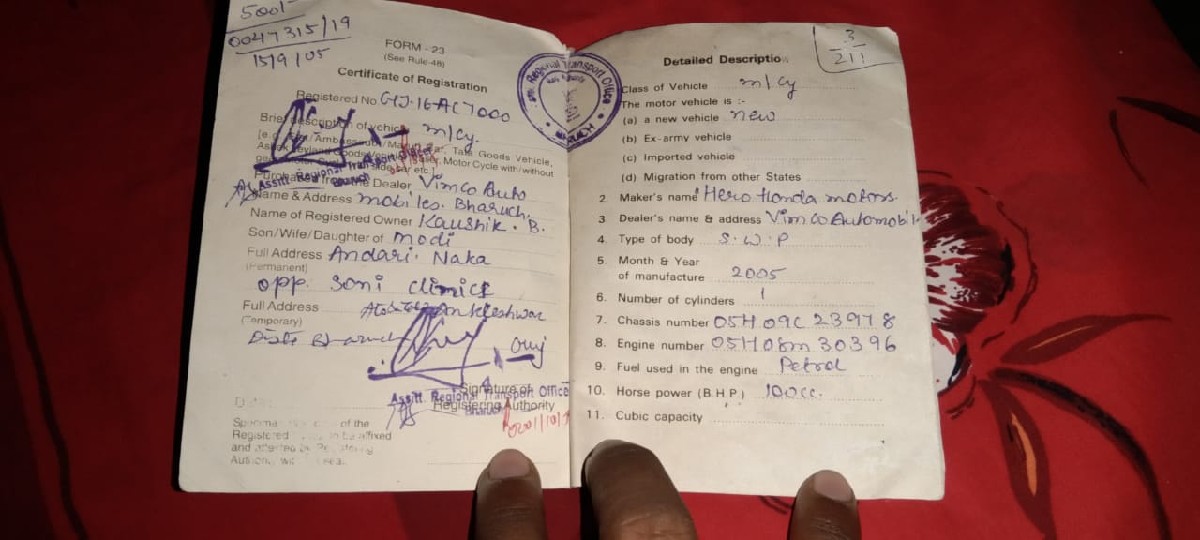 500/-
0047315/19
15/9/05
FORM - 23
(See Rule-48)
Certificate of Registration
Registered No. GJ.16-AC 7000
Brief description of vehicle m/cy.
Motor Cycle with/without
Purchased from the Dealer Vimco Auto
Name & Address mobiles. Bharuch.
Name of Registered Owner Kaushik. B.
Son/Wife/Daughter of modi
Full Address Andari. Naka
(Permanent)
opp. Soni clinics
Full Address Ankleshwar
(Temporary)
Signature of
Assitt. Regional Transport Officer
Registering Authority
Bharuch
of the
Registered to be affixed
Regional Transport Office
BHARUCH
3
211
Detailed Description
Class of Vehicle m/cy
The motor vehicle is :-
(a) a new vehicle new
(b) Ex-army vehicle
(c) Imported vehicle
(d) Migration from other States
2. Maker's name Hero Honda motors.
3 Dealer's name & address Vimco Automobil
4. Type of body S.W.P
5. Month & Year
of manufacture 2005
6. Number of cylinders 1
7. Chassis number 05H09C23978
8. Engine number 05H08m30396
9. Fuel used in the engine Petrol
10. Horse power (B.H.P.) 100cc.
11. Cubic capacity